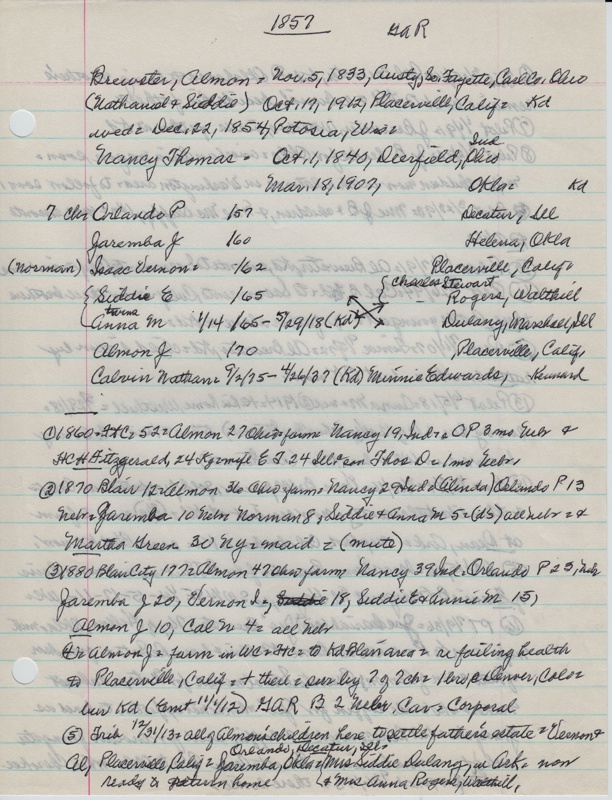 1857 GAR
Brewster, Almon = Nov. 5, 1833, Austy, So. Fayette, Ohio
(Nathaniel & Siddie) Oct. 17, 1912, Placerville, Calif = Kd
wed = Dec. 22, 1854, Potosia, Wis =
Ind
Nancy Thomas = Oct. 1, 1840, Deerfield, Ohio
Mar. 18, 1907, Okla = Kd
7 chs Orlando P '57 Decatur, Ill
Jaremba J '60 Helena, Okla
(Norman) Isaac Vernon = '62 Placerville, Calif.
{ Siddie E '65 { Charles Stewart Rogers, Walthill
{ twins
Anna M 1/14/65 - 5/29/18 (Kd) Dulany, Marshall, Ill
Almon J '70 Placerville, Calif.
Calvin Nathan = 9/2/75 - 4/26/37 (Kd) Minnie Edwards, Kennard
① 1860 = FtC = 52 = Almon 27 Ohio = farm Nancy 19, Ind = O P 3 mo Nebr &
H C H Fitzgerald, 24 Ky = wife E J 24 Ill = son Thos D = 1 mo Nebr,
② 1870 Blair 12 = Almon 36 Ohio farm = Nancy 29 Ind = (Alinda) Orlando P 13
Nebr = Jaremba 10 Nebr Norman 8, Siddie & Anna M 5 = (ds) all nebr = &
Martha Green 30 Ny = maid = (mute)
③ 1880 Blair City 177 = Almon 47 Ohio farm Nancy 39 Ind. Orlando P 23, Nebr
Jaremba J 20, Vernon I =, 18, Siddie E & Annie M 15,
Almon J 10, Cal N 4 = all Nebr
④ = Almon J = farm in WC = FtC = to Kd Blair area = re failing health
to Placerville, Calif = + there = sur by 7 of 7 ch = 1 bro, c Denver, Colo =
bur Kd (Ent 11/1/12) GAR B 2 Nebr, Cav = Corporal
⑤ Trib 12/31/13 = all of Almon's children here to settle father's estate = Vernon &
Orlando, Decatur, Ill =
Al, Placerville Calif = Jaremba, Okla = { Mrs Siddie Dulany, in Ark = now
ready to return home { & Mrs Anna Rogers, Walthill,